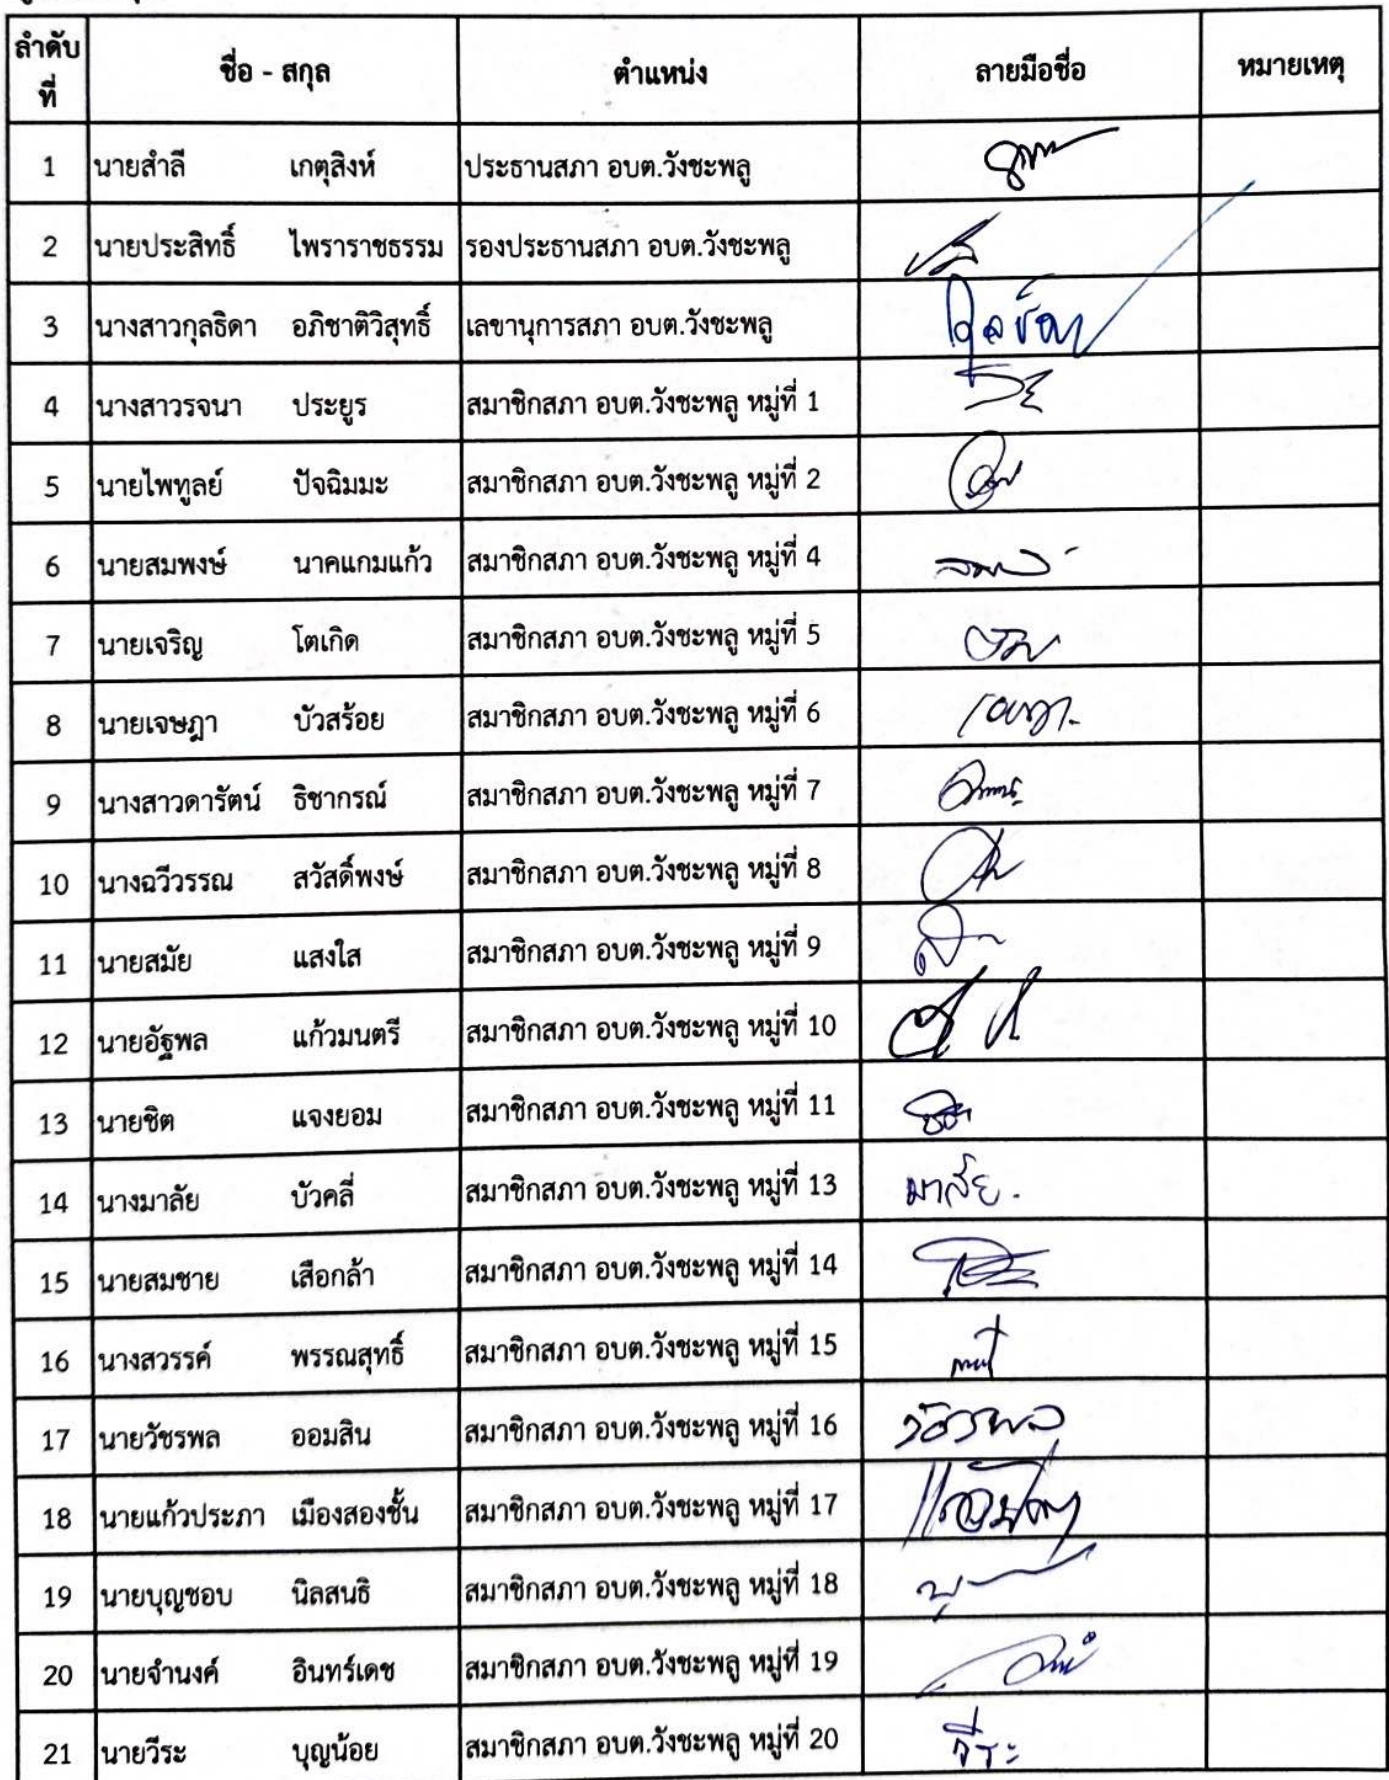 ลำดับที่ ชื่อ - สกุล ตำแหน่ง ลายมือชื่อ หมายเหตุ
1 นายสำลี เกตุสิงห์ ประธานสภา อบต.วังชะพลู
2 นายประสิทธิ์ ไพราราชธรรม รองประธานสภา อบต.วังชะพลู
3 นางสาวกุลธิดา อภิชาติวิสุทธิ์ เลขานุการสภา อบต.วังชะพลู
4 นางสาวรจนา ประยูร สมาชิกสภา อบต.วังชะพลู หมู่ที่ 1
5 นายไพทูลย์ ปัจฉิมมะ สมาชิกสภา อบต.วังชะพลู หมู่ที่ 2
6 นายสมพงษ์ นาคแกมแก้ว สมาชิกสภา อบต.วังชะพลู หมู่ที่ 4
7 นายเจริญ โตเกิด สมาชิกสภา อบต.วังชะพลู หมู่ที่ 5
8 นายเจษฎา บัวสร้อย สมาชิกสภา อบต.วังชะพลู หมู่ที่ 6
9 นางสาวดารัตน์ ธิชากรณ์ สมาชิกสภา อบต.วังชะพลู หมู่ที่ 7
10 นางฉวีวรรณ สวัสดิ์พงษ์ สมาชิกสภา อบต.วังชะพลู หมู่ที่ 8
11 นายสมัย แสงใส สมาชิกสภา อบต.วังชะพลู หมู่ที่ 9
12 นายอัฐพล แก้วมนตรี สมาชิกสภา อบต.วังชะพลู หมู่ที่ 10
13 นายชิต แจงยอม สมาชิกสภา อบต.วังชะพลู หมู่ที่ 11
14 นางมาลัย บัวคลี่ สมาชิกสภา อบต.วังชะพลู หมู่ที่ 13 มาลัย
15 นายสมชาย เสือกล้า สมาชิกสภา อบต.วังชะพลู หมู่ที่ 14
16 นางสวรรค์ พรรณสุทธิ์ สมาชิกสภา อบต.วังชะพลู หมู่ที่ 15
17 นายวัชรพล ออมสิน สมาชิกสภา อบต.วังชะพลู หมู่ที่ 16 วัชรพล
18 นายแก้วประภา เมืองสองชั้น สมาชิกสภา อบต.วังชะพลู หมู่ที่ 17
19 นายบุญชอบ นิลสนธิ สมาชิกสภา อบต.วังชะพลู หมู่ที่ 18
20 นายจำนงค์ อินทร์เดช สมาชิกสภา อบต.วังชะพลู หมู่ที่ 19
21 นายวีระ บุญน้อย สมาชิกสภา อบต.วังชะพลู หมู่ที่ 20 วีระ